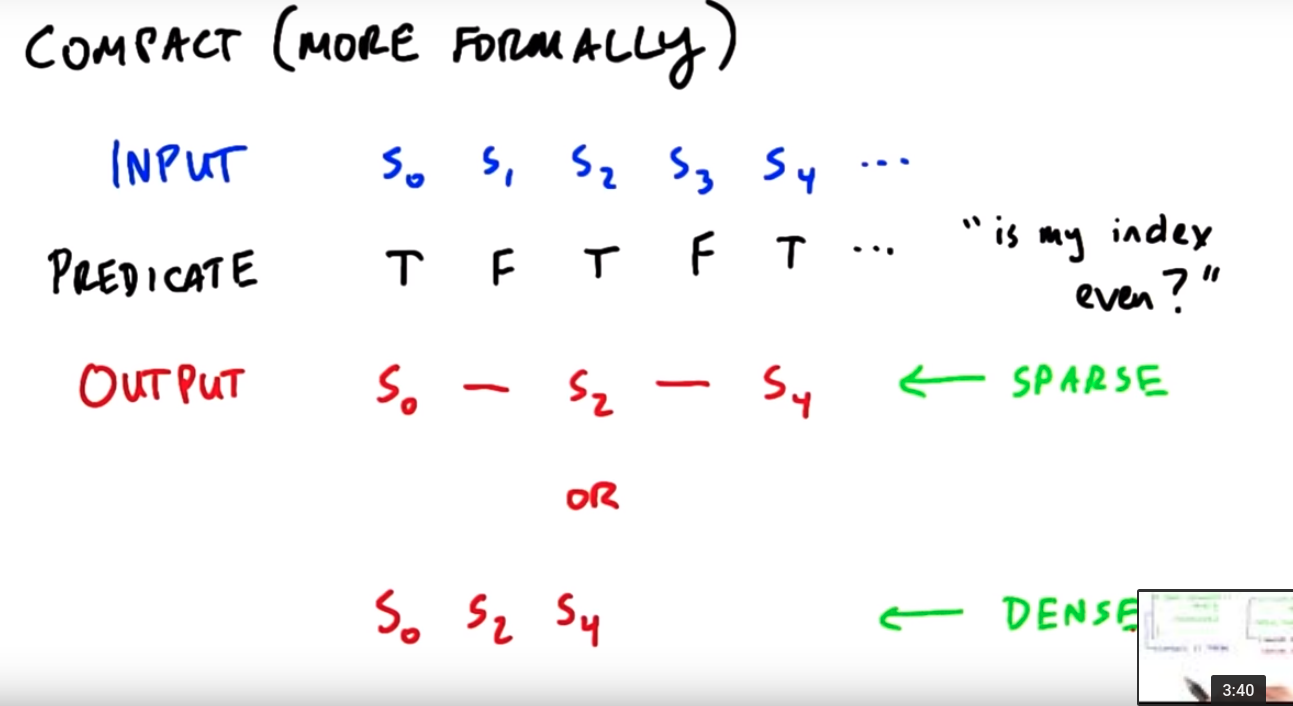 COMPACT (MORE FORMALLY)
INPUT S₀ S₁ S₂ S₃ S₄ ...
PREDICATE T F T F T ... "is my index
even?"
OUTPUT S₀ — S₂ — S₄ ← SPARSE
OR
S₀ S₂ S₄ ← DENSE
3:40